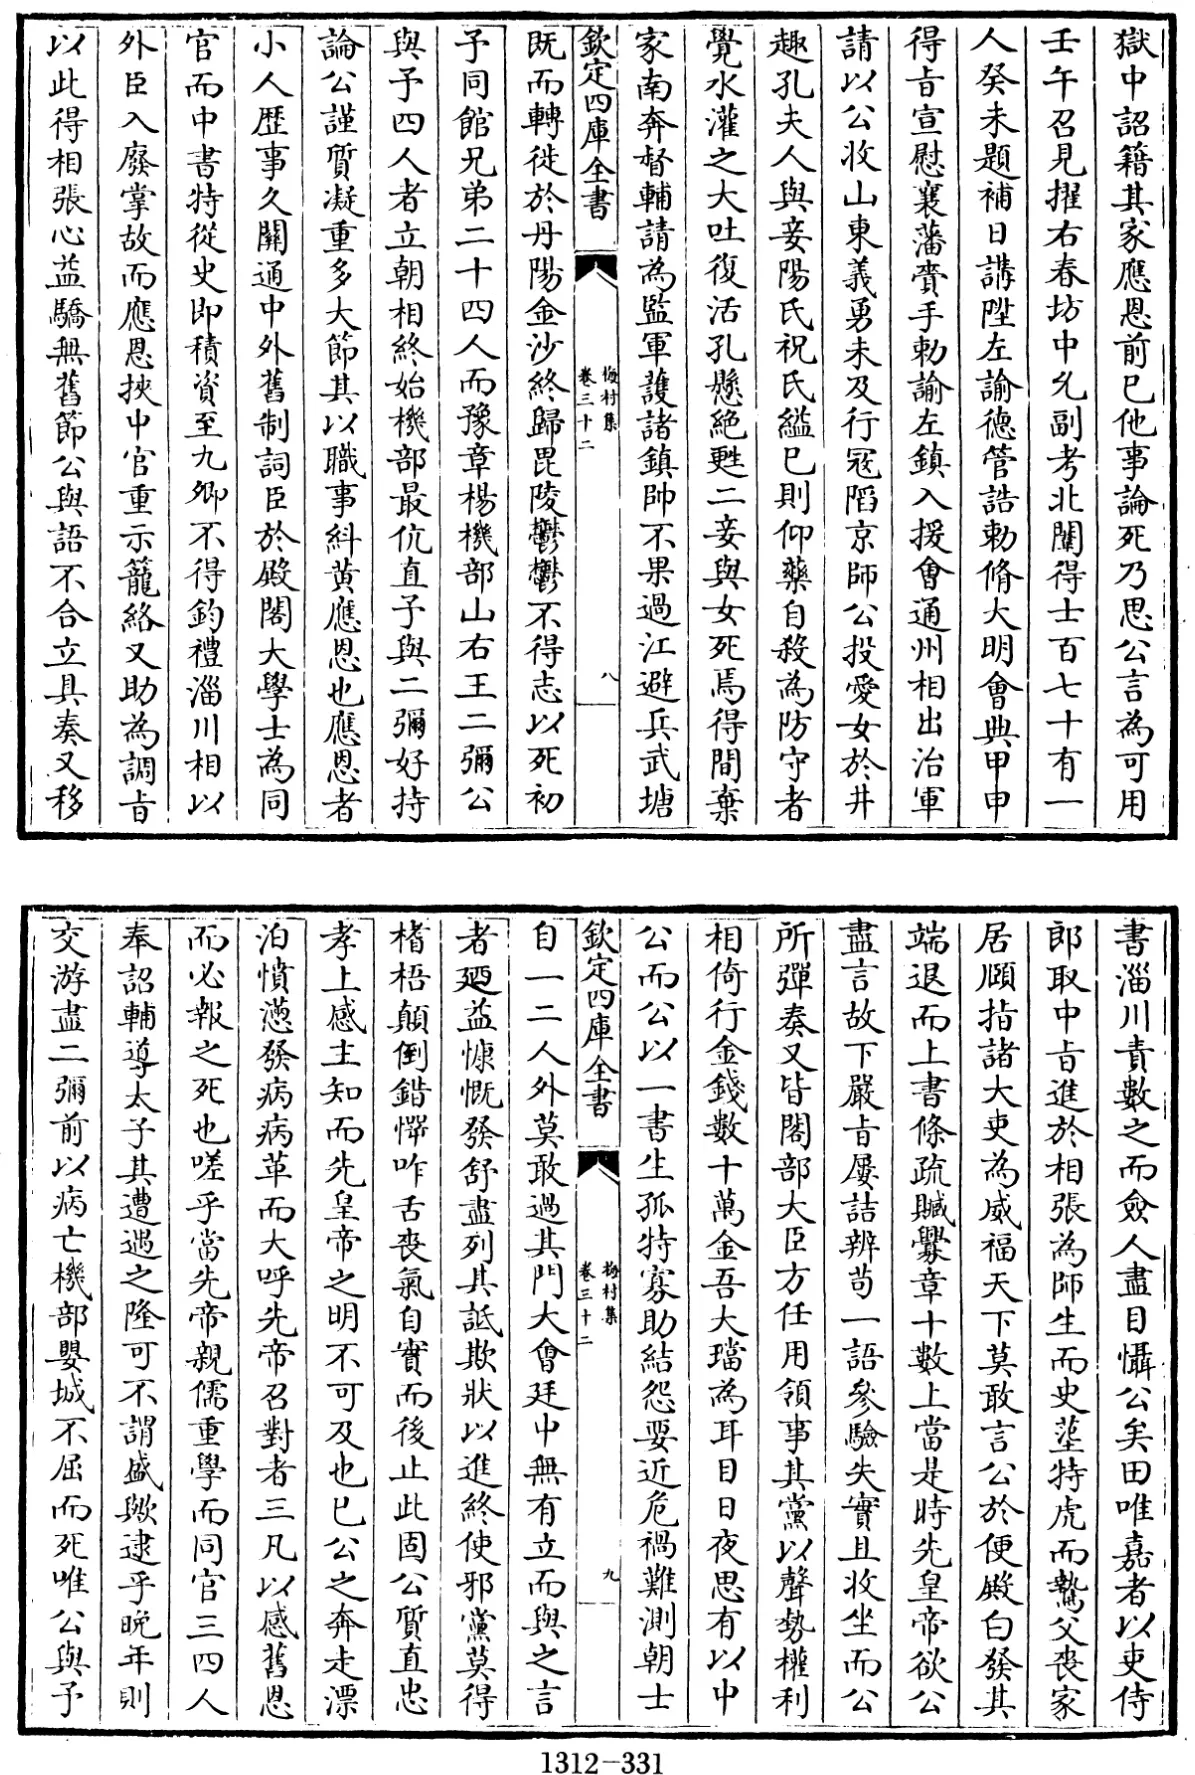 獄中詔籍其家應恩前已他事論死乃思公言為可用
壬午召見擢右春坊中允副考北闈得士百七十有一
人癸未題補日講陞左諭德管誥勅脩大明會典甲申
得㫖宣慰襄藩賫手勅諭左鎮入援會通州相出治軍
請以公收山東義勇未及行冦䧟京師公投愛女於井
趣孔夫人與妾陽氏祝氏縊已則仰藥自殺為防守者
覺水灌之大吐復活孔懸絶甦二妾與女死焉得間棄
家南奔督輔請為監軍䕶諸鎮帥不果過江避兵武塘
欽定四庫全書
梅村集
卷三十二
八
既而轉徙於丹陽金沙終歸毘陵鬱鬱不得志以死初
予同館兄弟二十四人而豫章楊機部山右王二彌公
與予四人者立朝相終始機部最伉直予與二彌好持
論公謹質凝重多大節其以職事糾黄應恩也應恩者
小人歴事久關通中外舊制詞臣於殿閣大學士為同
官而中書特從史即積資至九卿不得鈞禮淄川相以
外臣入廢掌故而應恩挾中官重示籠絡又助為調㫖
以此得相張心益驕無舊節公與語不合立具奏又移
書淄川責數之而僉人盡目懾公矣田唯嘉者以吏侍
郎取中㫖進於相張為師生而史𡎊特虎而鷙父喪家
居頤指諸大吏為威福天下莫敢言公於便殿白發其
端退而上書條疏贓釁章十數上當是時先皇帝欲公
盡言故下嚴㫖屢詰辨茍一語參驗失實且收坐而公
所彈奏又皆閣部大臣方任用領事其黨以聲勢權利
相倚行金錢數十萬金吾大璫為耳目日夜思有以中
公而公以一書生孤特寡助結怨要近危禍難測朝士
欽定四庫全書
梅村集
卷三十二
九
自一二人外莫敢過其門大會廷中無有立而與之言
者廼益慷慨發舒盡列其詆欺狀以進終使邪黨莫得
榰梧顛倒錯愕咋舌喪氣自實而後止此固公質直忠
孝上感主知而先皇帝之明不可及也已公之奔走漂
泊憤懣發病病革而大呼先帝召對者三凡以感舊恩
而必報之死也嗟乎當先帝親儒重學而同官三四人
奉詔輔導太子其遭遇之隆可不謂盛歟逮乎晚年則
交游盡二彌前以病亡機部嬰城不屈而死唯公與予
1312-331